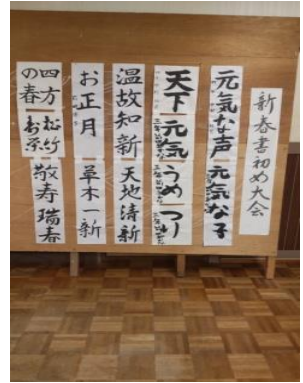 新春書初め大会
元気な声
元気な子
天下
元気
うめ
つり
温故知新
天地清新
お正月
草木一新
四方の春
松竹
敬寿
瑞春